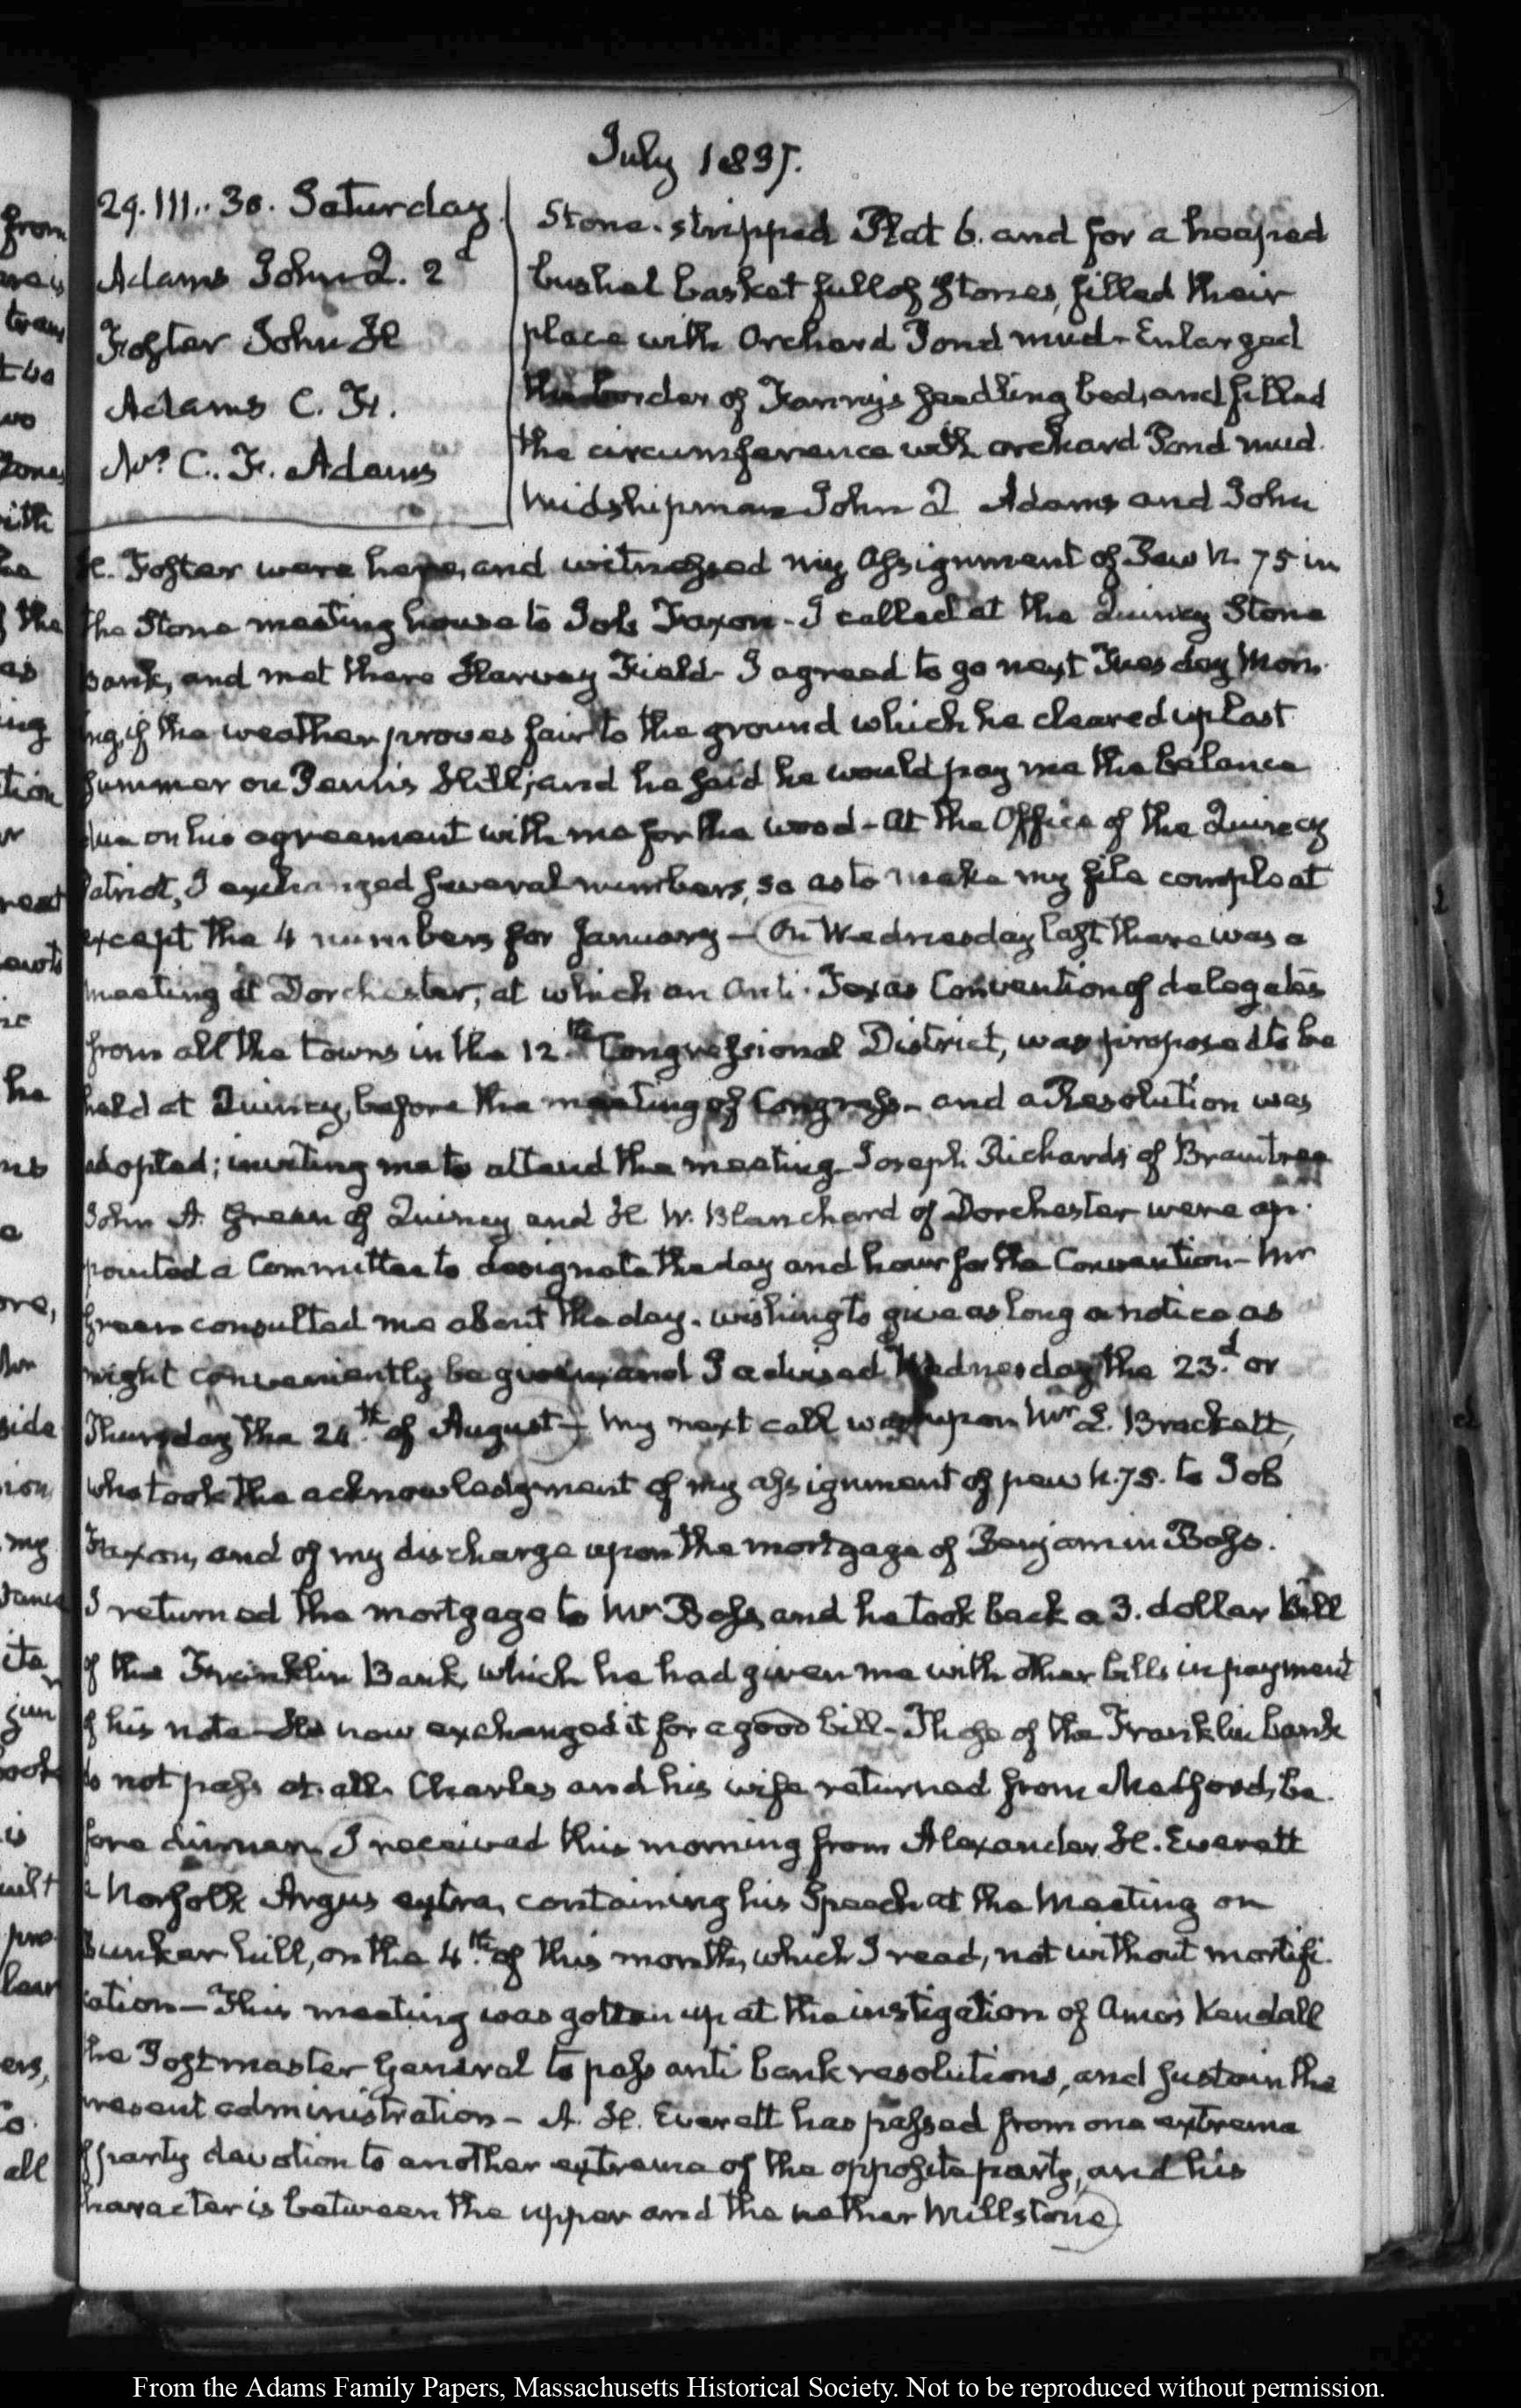 July 1837.
29. III.. 30. Saturday.
Adams John Q. 2d
Foster John H
Adams C. F.
Mrs C. F. Adams
Stone-stripped Plat 6. and for a heaped
bushel basket full of Stones, filled their
place with Orchard Pond mud - Enlarged
the border of Fanny's seedling bed, and filled
the circumference with orchard Pond mud.
Midshipman John Q Adams and John
H. Foster were here, and witnessed my assignment of Pew N. 75 in
the Stone meeting house to Job Faxon - I called at the Quincy Stone
bank, and met there Harvey Field - I agreed to go next Tuesday Morn-
ing, if the weather proves fair to the ground which he cleared up last
Summer on Penn's Hill; and he said he would pay me the balance
due on his agreement with me for the wood - at the Office of the Quincy
Patriot, I exchanged several numbers, so as to make my file compleat
except the 4 numbers for January - On Wednesday last there was a
meeting at Dorchester, at which an Anti-Texas Convention of delegates
from all the towns in the 12th Congressional District, was proposed to be
held at Quincy, before the meeting of Congress - and a Resolution was
adopted; inviting me to attend the meeting - Joseph Richards of Braintree
John A. Green of Quincy and H W. Blanchard of Dorchester were ap-
pointed a Committee to designate the day and hour for the Convention - Mr
Green consulted me about the day. wishing to give as long a notice as
might conveniently be given, and I advised Wednesday the 23.d or
Thursday the 24.th of August - My next call was upon Mr L. Brackett,
who took the acknowledgment of my assignment of pew N. 75. to Job
Faxon, and of my discharge upon the mortgage of Benjamin Bass.
I returned the mortgage to Mr Bass, and he took back a 3. dollar Bill
of the Franklin Bank, which he had given me with other bills in payment
of his note - He now exchanged it for a good bill - Those of the Franklin bank
do not pass at all. Charles and his wife returned from Medford, be-
fore dinner. I received this morning from Alexander H. Everett
a Norfolk Argus extra, containing his Speech at the Meeting on
Bunker hill, on the 4.th of this month, which I read, not without mortifi-
cation - This meeting was gotten up at the instigation of Amos Kendall
the Postmaster General to pass anti bank resolutions, and sustain the
present administration - A. H. Everett has passed from one extreme
of party devotion to another extreme of the opposite party, and his
character is between the upper and the nether Millstone
From the Adams Family Papers, Massachusetts Historical Society. Not to be reproduced without permission.